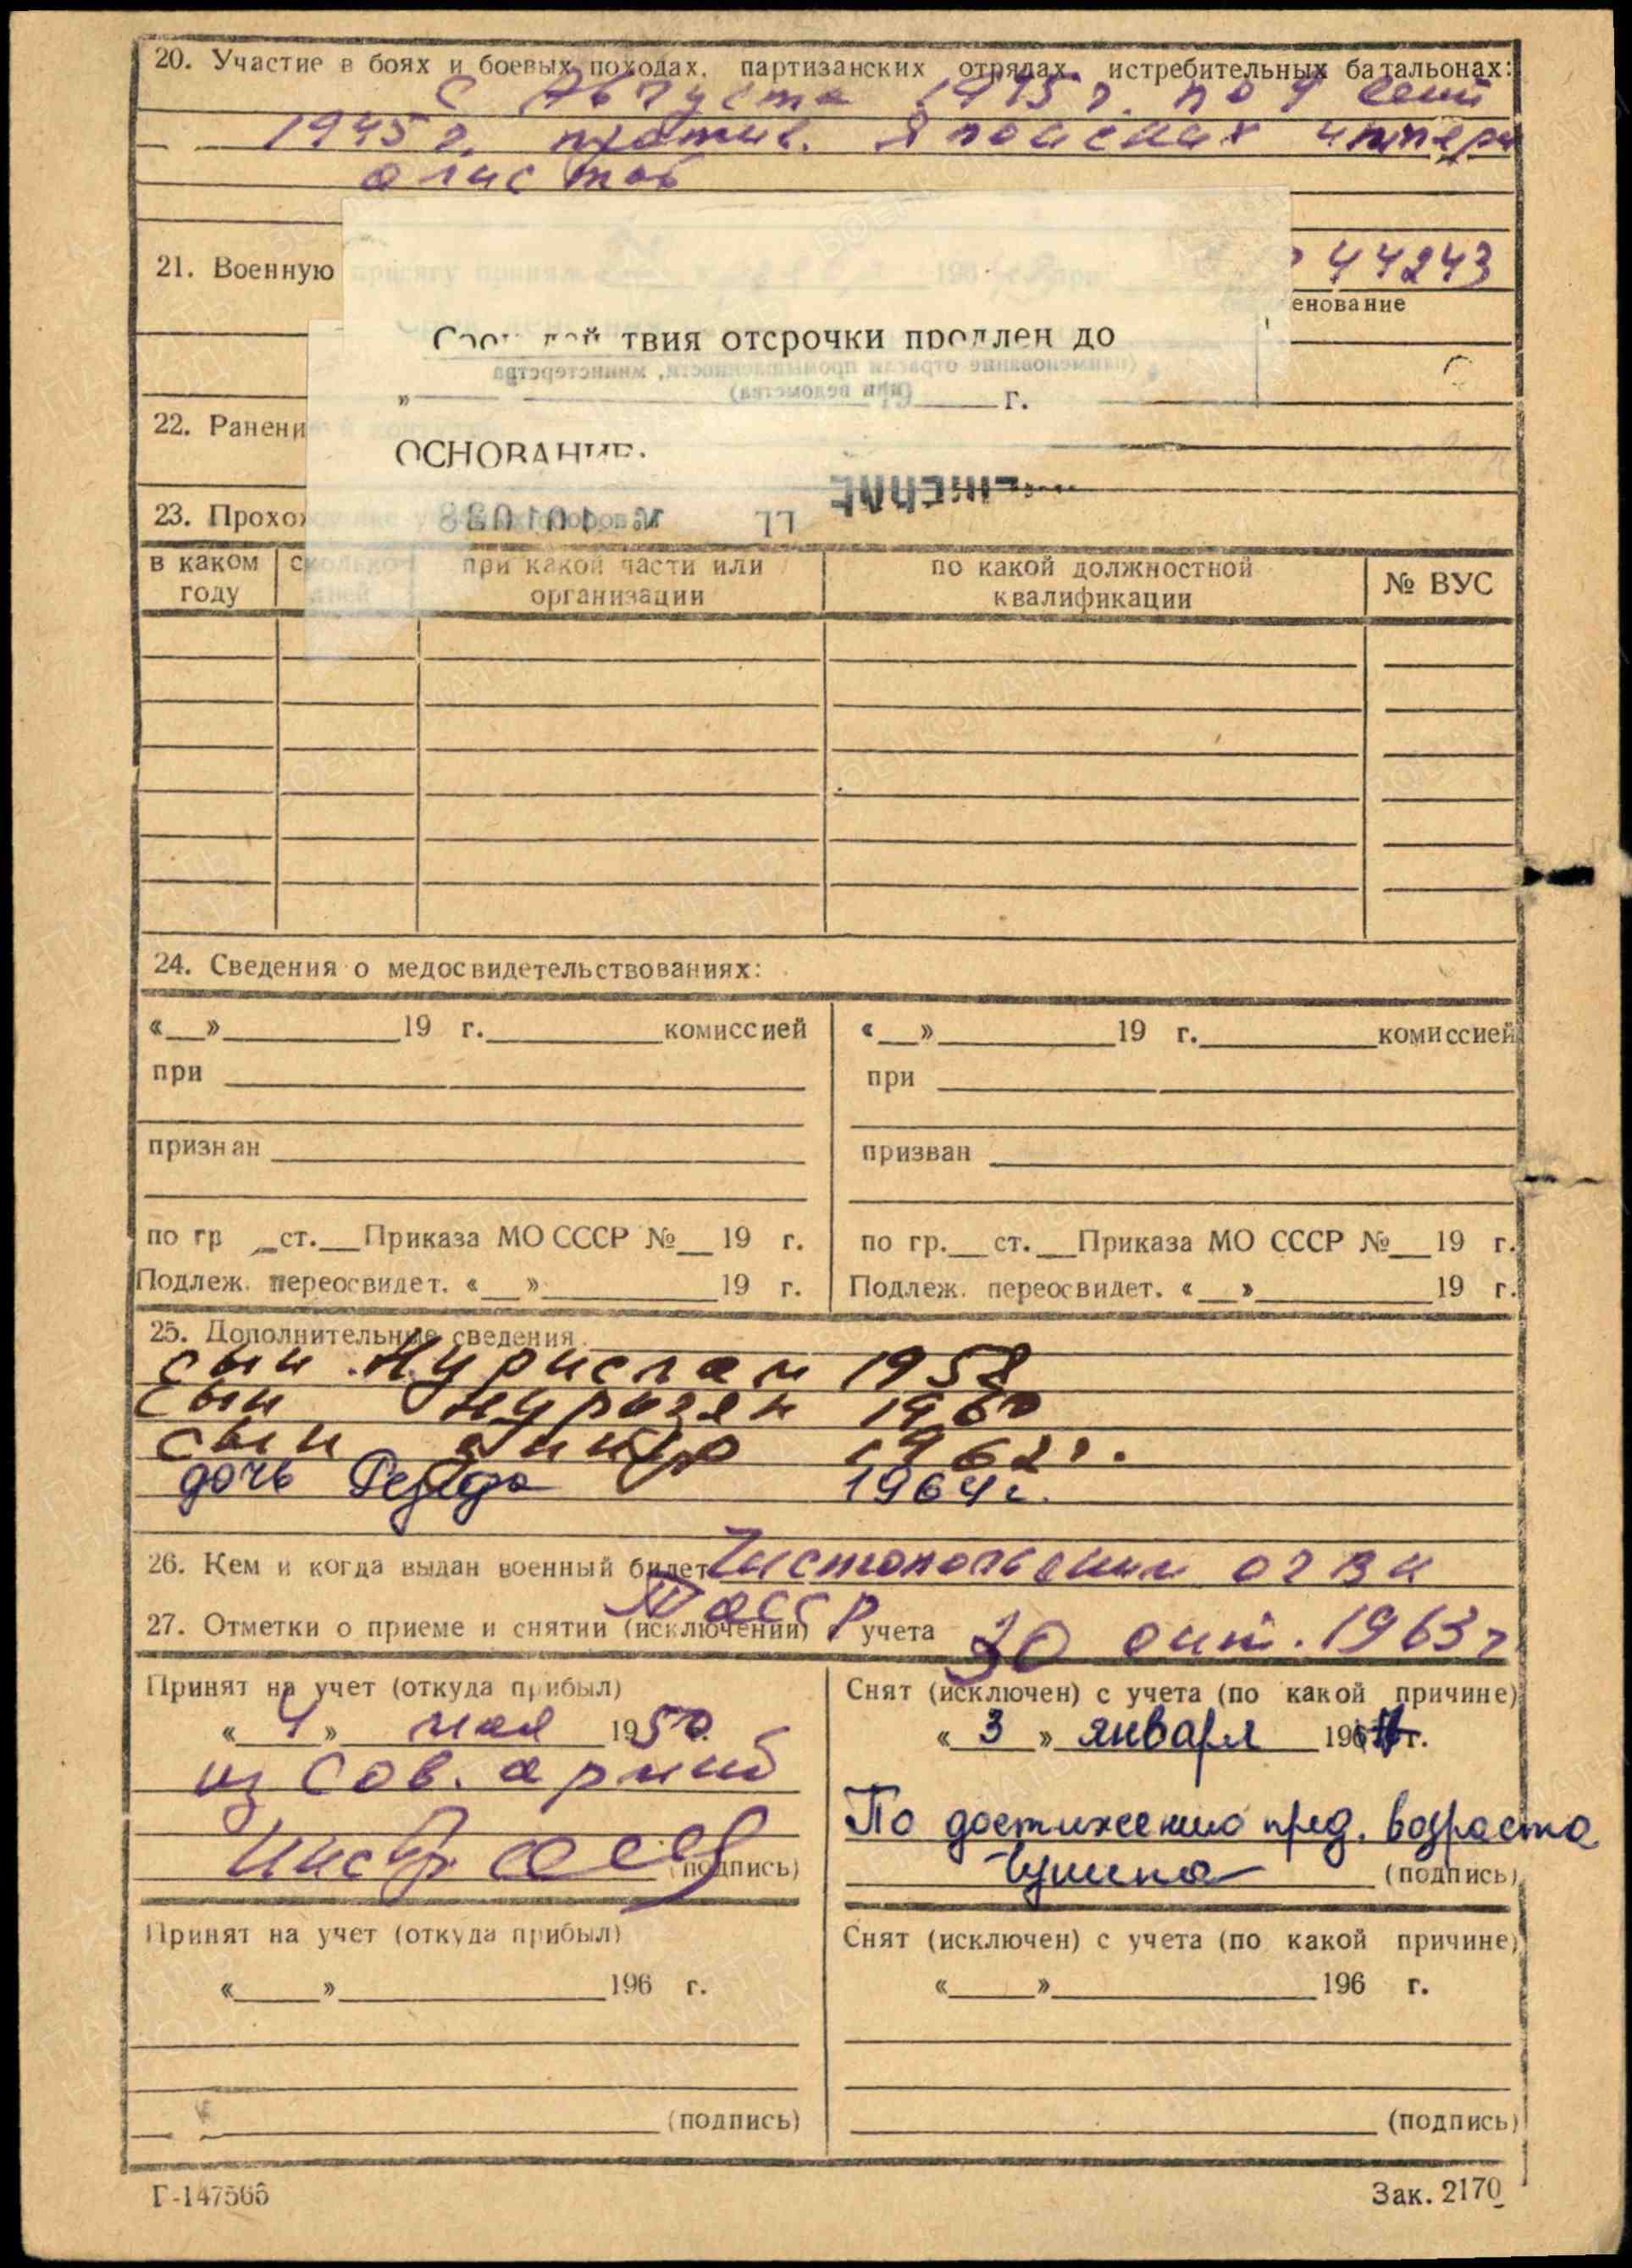 20. Участие в боях и боевых походах, партизанских отрядах, истребительных батальонах:
с Августа 1945 г. по 9 сент
1945 г. против. Японских импери
алистов
21. Военную
44243
енование
твия отсрочки продлен до
(наименование отрасли промышленности, министерства
(или ведомства)
„ г.
22. Ранени
ОСНОВАНИЕ:
23. Прохо
в каком году
сколько дней
при какой части или организации
по какой должностной квалификации
№ ВУС
24. Сведения о медосвидетельствованиях:
« » 19 г. комиссией
при
признан
по гр ст. Приказа МО СССР № 19 г.
Подлеж. переосвидет. « » 19 г.
« » 19 г. комиссией
при
призван
по гр. ст. Приказа МО СССР № 19 г.
Подлеж. переосвидет. « » 19 г.
25. Дополнительные сведения
сын Нурислам 1958
сын Нурзян 1960
сын 1962 г.
дочь Резеда 1964 г.
26. Кем и когда выдан военный билет Чистопольским ОГВК
ТАССР
27. Отметки о приеме и снятии (исключении) с учета 30 окт. 1963 г
Принят на учет (откуда прибыл)
« 4 » мая 1950.
из Сов. армии
(подпись)
Снят (исключен) с учета (по какой причине)
« 3 » января 196 г.
По достижению пред. возраста
(подпись)
Принят на учет (откуда прибыл)
« » 196 г.
(подпись)
Снят (исключен) с учета (по какой причине)
« » 196 г.
(подпись)
Г-147566
Зак. 2170